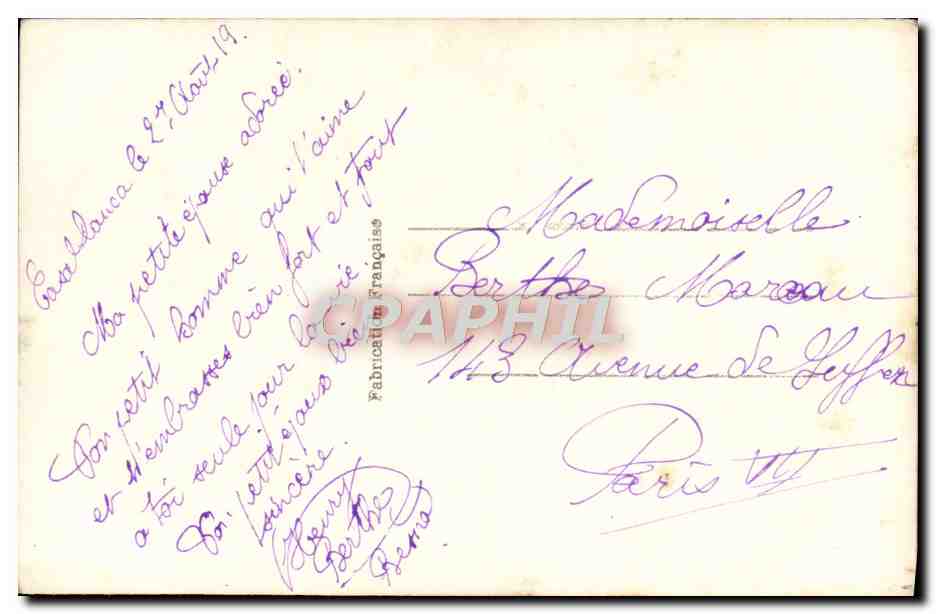 Casablanca le 27 Août 19.
Ma petite épouse adorée.
Ton petit homme qui t'aime
et t'embrasses bien fort et tout
a toi seule pour la vie
Ton petit époux bien
sincère.
Henry
Berthe
Fabrication Française
CPAPHIL
Mademoiselle
Berthe Moreau
143 Avenue de Suffren
Paris VII